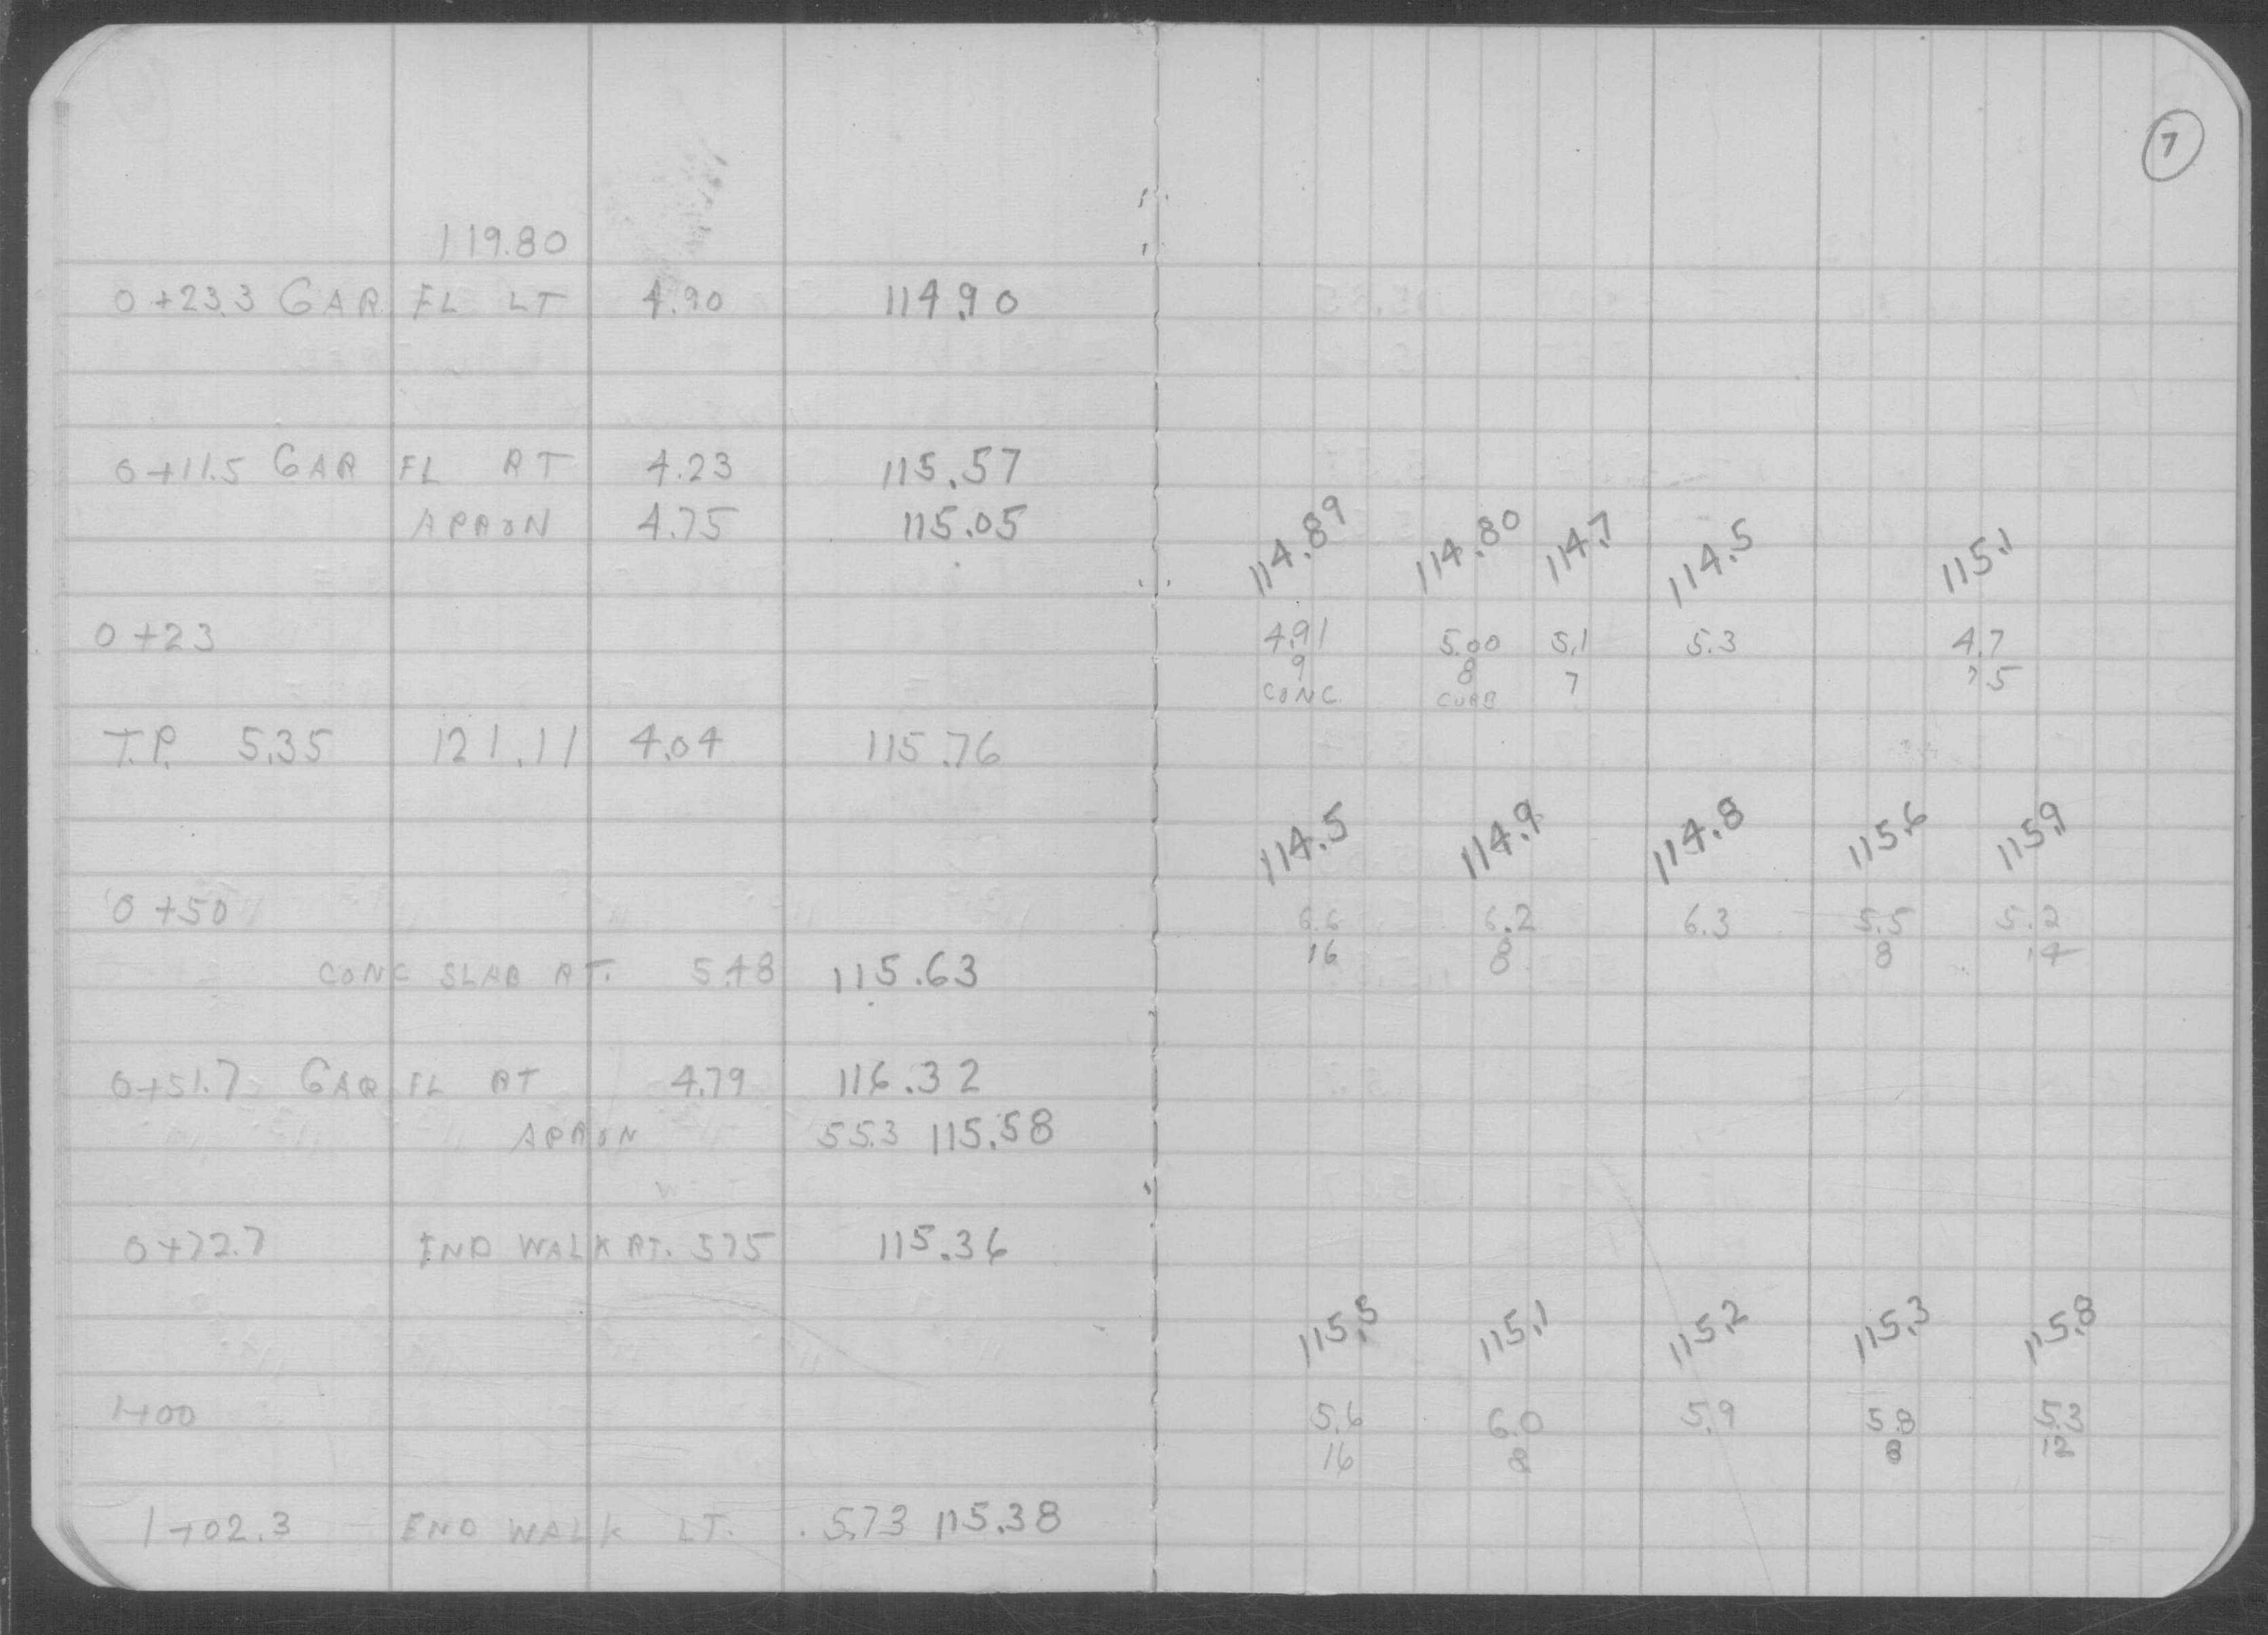 7
119.80
0+23.3 GAR FL LT 4.90 114.90
0+11.5 GAR FL RT 4.23 115.57
APRON 4.75 115.05
114.89 114.80 114.7 114.5 115.1
0+23 4.91 5.00 5.1 5.3 4.7
9 8 7 5
CONC CURB
T.P. 5.35 121.11 4.04 115.76
114.5 114.9 114.8 115.6 115.9
0+50 6.6 6.2 6.3 5.5 5.2
16 8 8 14
CONC SLAB RT. 5.48 115.63
0+51.7 GAR FL RT 4.79 116.32
APRON 5.53 115.58
0+72.7 END WALK RT. 5.75 115.36
115.5 115.1 115.2 115.3 115.8
1+00 5.6 6.0 5.9 5.8 5.3
16 8 8 12
1+02.3 END WALK LT. 5.73 115.38